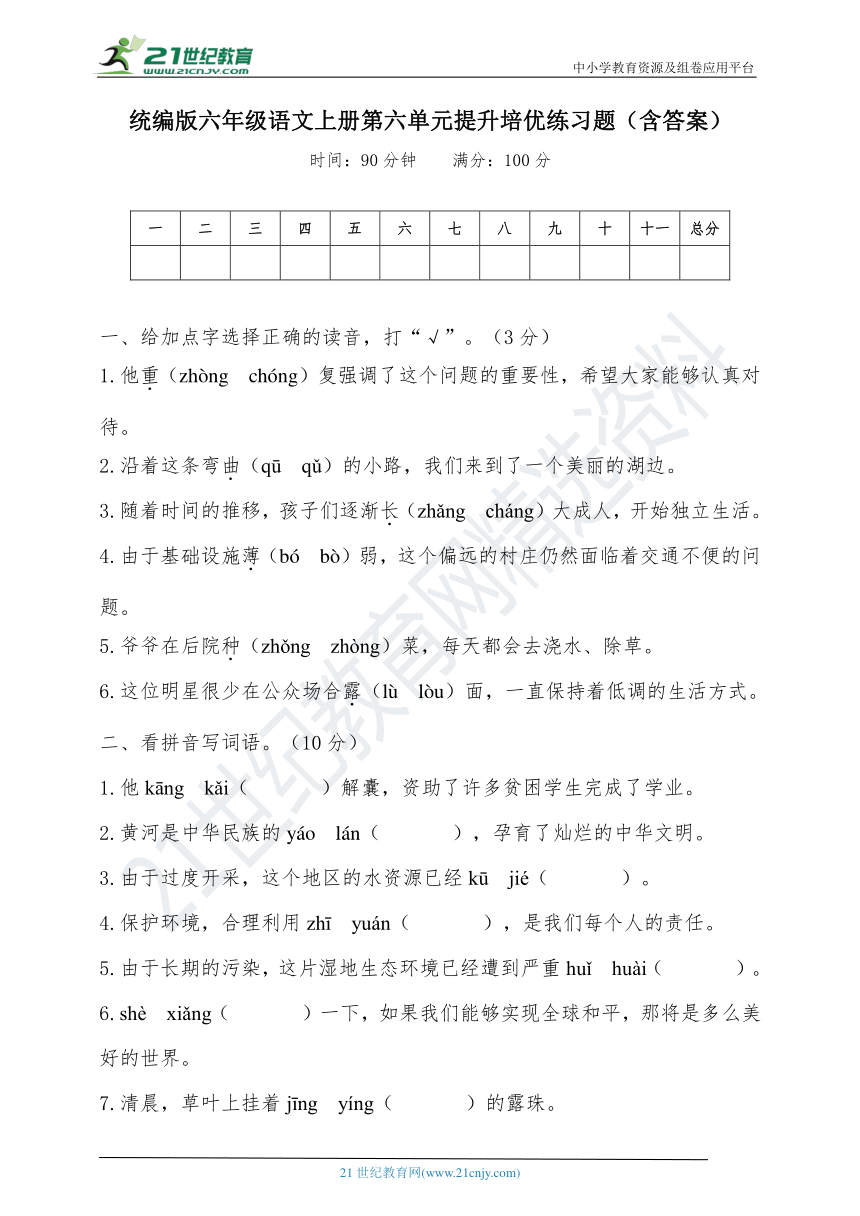 21世纪教育
www.21cnjy.com
中小学教育资源及组卷应用平台
统编版六年级语文上册第六单元提升培优练习题（含答案）
时间:90分钟 满分:100分
一 二 三 四 五 六 七 八 九 十 十一 总分
一、给加点字选择正确的读音,打“√”。（3分）
1.他重（zhòng chóng）复强调了这个问题的重要性,希望大家能够认真对
待。
2.沿着这条弯曲（qū qǔ）的小路,我们来到了一个美丽的湖边。
3.随着时间的推移,孩子们逐渐长（zhǎng cháng）大成人,开始独立生活。
4.由于基础设施薄（bó bò）弱,这个偏远的村庄仍然面临着交通不便的问
题。
5.爷爷在后院种（zhǒng zhòng）菜,每天都会去浇水、除草。
6.这位明星很少在公众场合露（lù lòu）面,一直保持着低调的生活方式。
二、看拼音写词语。（10分）
1.他kāng kǎi（ ）解囊,资助了许多贫困学生完成了学业。
2.黄河是中华民族的yáo lán（ ）,孕育了灿烂的中华文明。
3.由于过度开采,这个地区的水资源已经kū jié（ ）。
4.保护环境,合理利用zhī yuán（ ）,是我们每个人的责任。
5.由于长期的污染,这片湿地生态环境已经遭到严重huǐ huài（ ）。
6.shè xiǎng（ ）一下,如果我们能够实现全球和平,那将是多么美
好的世界。
7.清晨,草叶上挂着jīng yíng（ ）的露珠。
21世纪教育网精选资料
21世纪教育网(www.21cnjy.com)